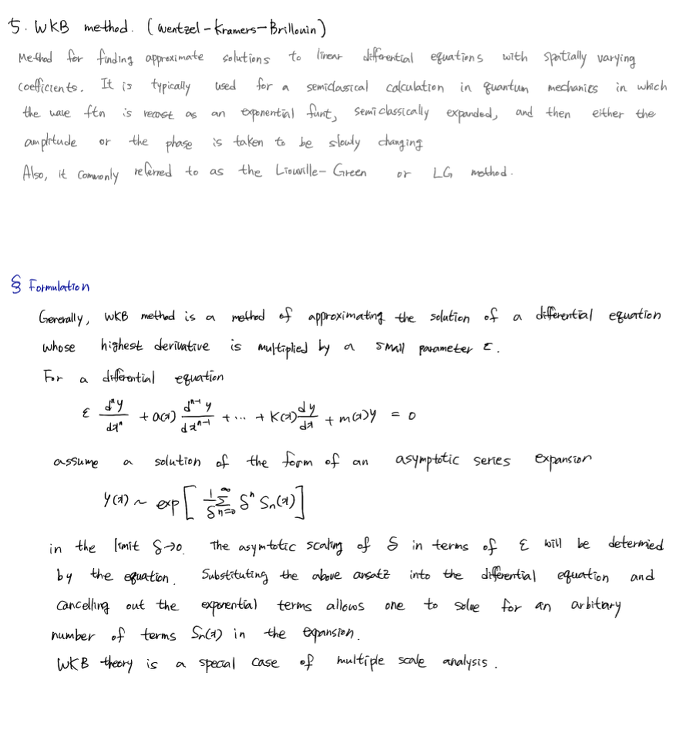 5. WKB method. (Wentzel-Kramers-Brillouin)
Method for finding approximate solutions to linear differential equations with spatially varying
coefficients. It is typically used for a semiclassical calculation in quantum mechanics in which
the wave ftn is recast as an exponential funt, semiclassically expanded, and then either the
amplitude or the phase is taken to be slowly changing
Also, it commonly referred to as the Liouville-Green or LG method.
§ Formulation
Generally, WKB method is a method of approximating the solution of a differential equation
whose highest derivative is multiplied by a small parameter ε.
For a differential equation
ε dⁿy/dxⁿ + a(x) dⁿ⁻¹y/dxⁿ⁻¹ + ... + k(x) dy/dx + m(x)y = 0
assume a solution of the form of an asymptotic series expansion
y(x) ~ exp[ 1/δ ∑_{n=0}^{∞} δⁿ Sₙ(x) ]
in the limit δ→0. The asymtotic scaling of δ in terms of ε will be determied
by the equation. Substituting the above ansatz into the differential equation and
cancelling out the exponential terms allows one to solve for an arbitary
number of terms Sₙ(x) in the expansion.
WKB theory is a special case of multiple scale analysis.